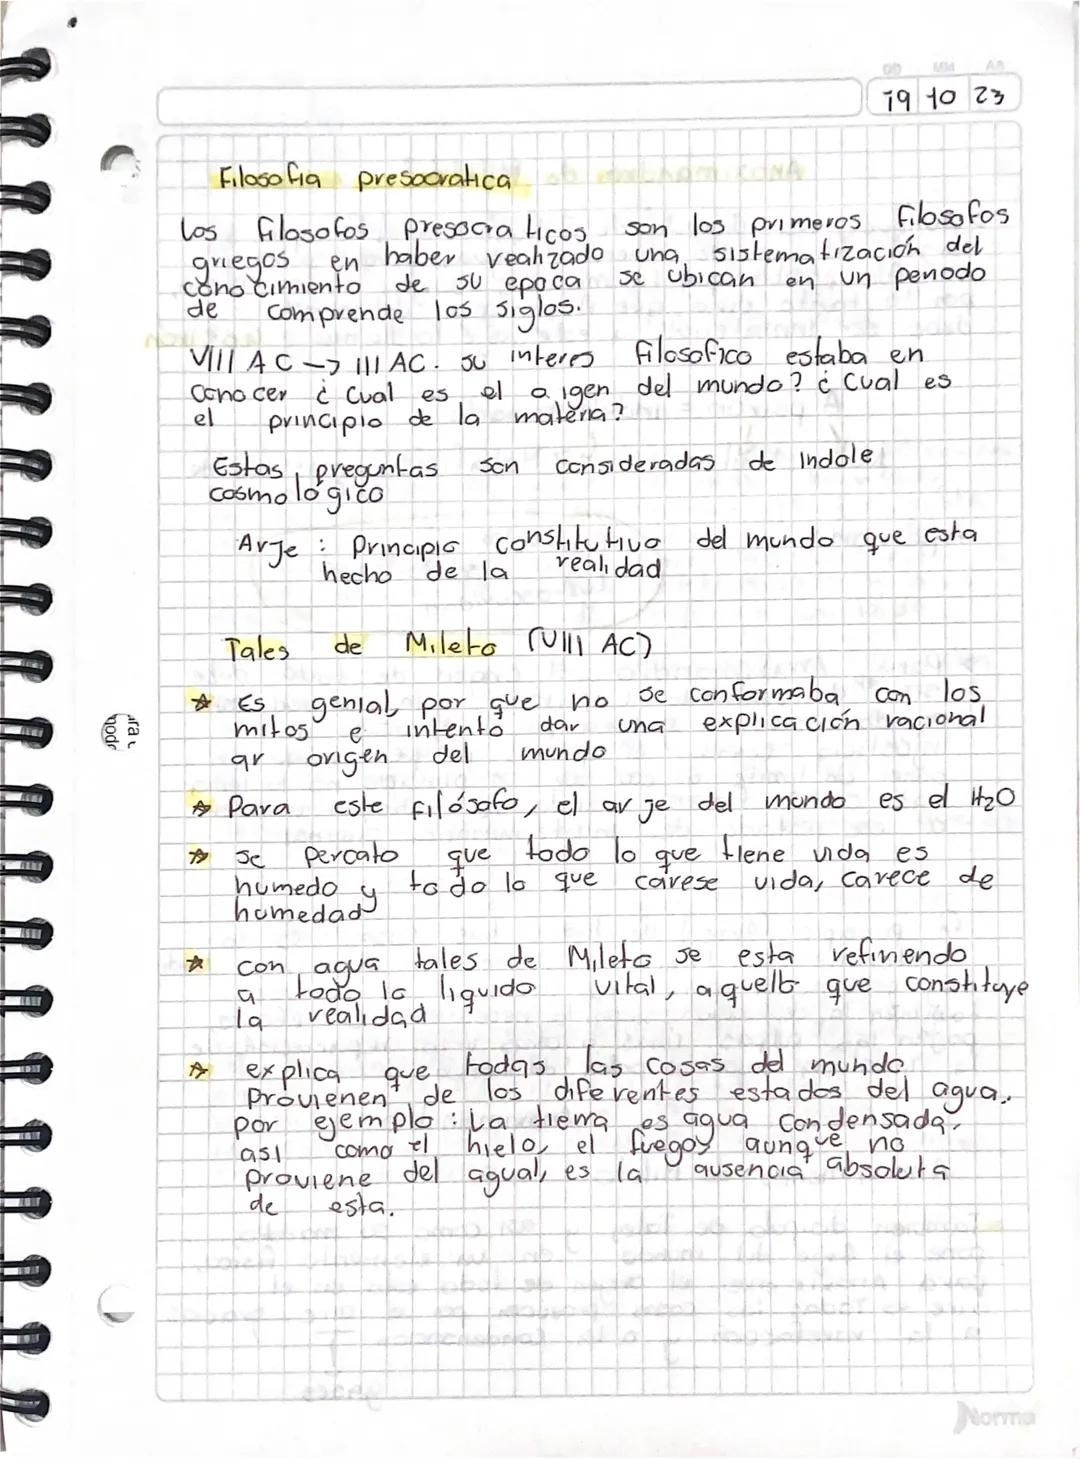 DD MM AA
19 10 23
Filosofia presocratica
los filosofos presocraticos son los primeros filosofos
griegos en haber realizado una sistematización del
conocimiento de su epoca se ubican en un periodo
de comprende los siglos.
VIII AC → III AC. su interes filosofico estaba en
conocer ¿ Cual es el origen del mundo? ¿ Cual es
el principio de la materia?
Estas preguntas son consideradas de indole
cosmológico
Arje : Principio constitutivo del mundo que esta
hecho de la realidad
Tales de Mileto (VIII AC)
☆ Es genial por que no se conformaba con los
mitos e intentó dar una explicación racional
ar origen del mundo
☆ Para este filósofo, el arje del mundo es el H2O
☆ se percato que todo lo que tiene vida es
humedo y todo lo que carese vida, carece de
humedad
☆ con agua tales de Mileto se esta refiriendo
a todo lo liquido vital, aquello que constituye
la realidad
☆ explica que todas las cosas del mundo
provienen de los diferentes estados del agua.
por ejemplo: La tierra es agua condensada,
asi como el hielo, el fuego, aunque no
proviene del agual, es la ausencia absoluta
de esta.
Norma